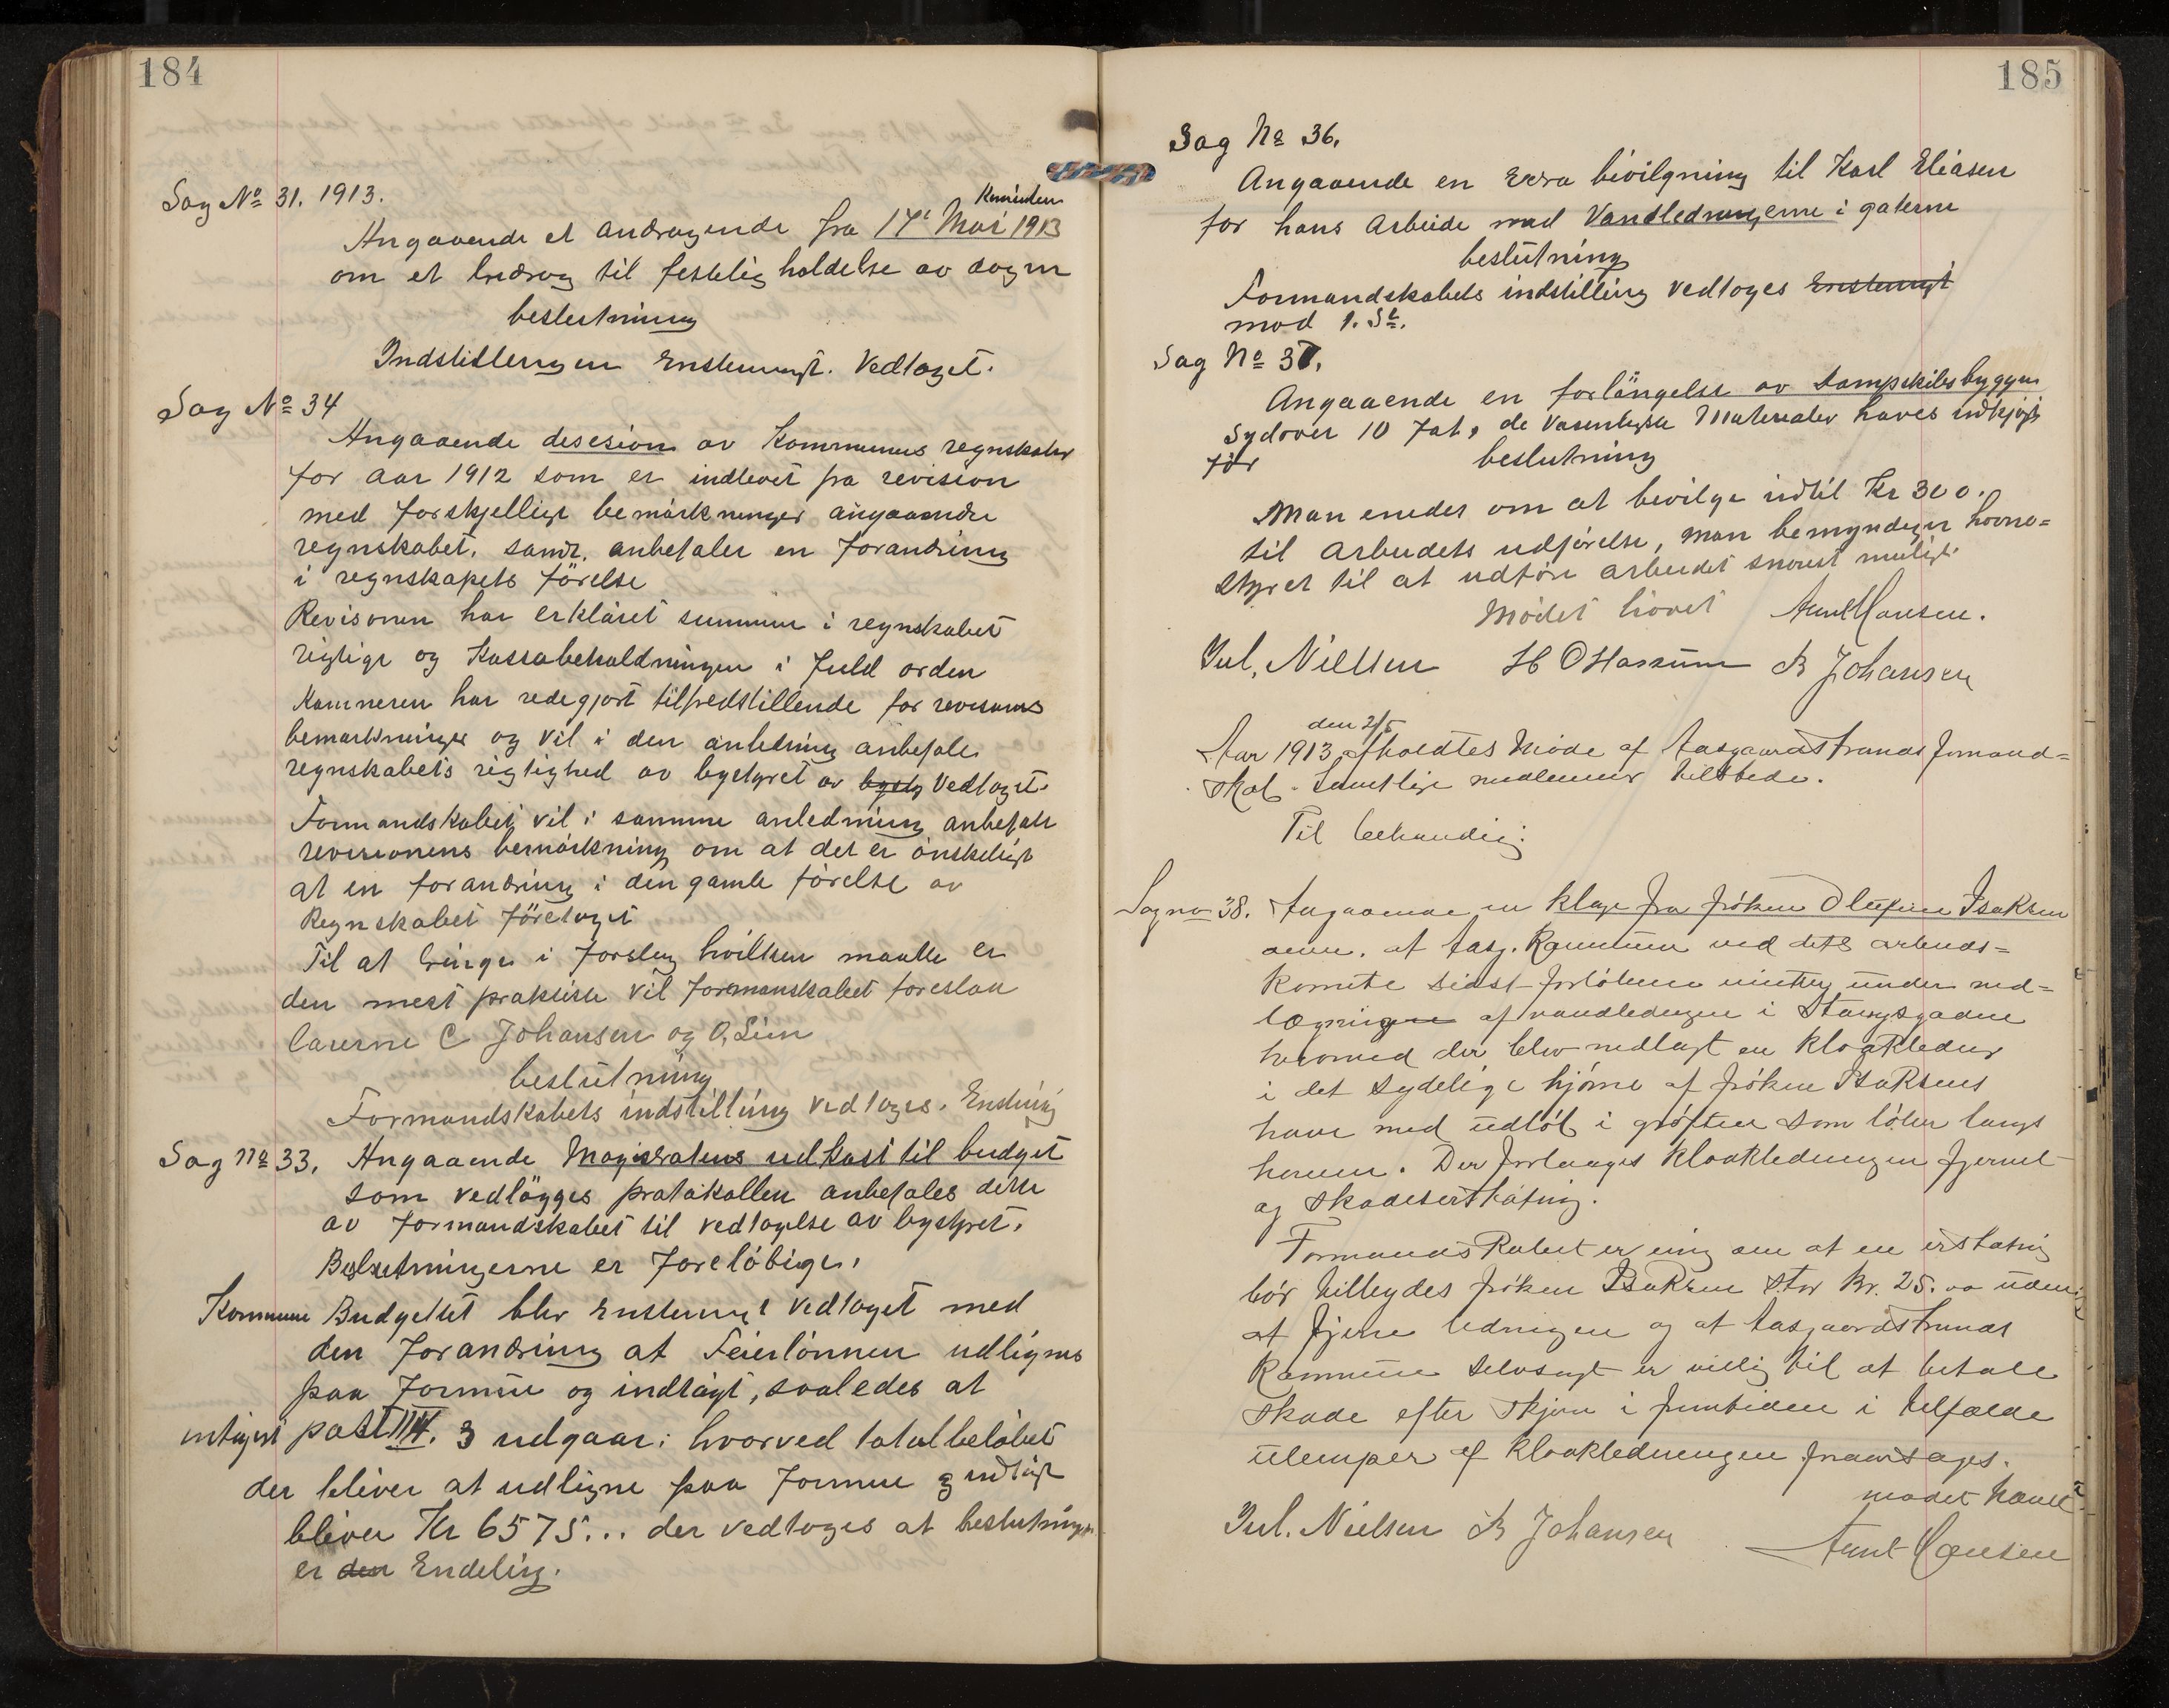 184
Sag No 31. 1913.
Komiteen
Angaaende et andragende fra 17de Mai 1913
om et bidrag til festelig holdelse av dagen
beslutning
Indstillingen Enstemmigt. Vedtaget.
Sag No 34
Angaaende desesion av Kommunens regnskaber
for aar 1912 som er indlevert fra revision
med forskjellige bemärkninger angaaende
regnskabet, samt. anbefaler en forandring
i regnskapets förelse
Revisonen har erkläret summene i regnskabet
rigtige og Kassabeholdningen i fuld orden
Kämneren har redegjort tilfredstillende for revisions
bemärkninger og vil i den anledning anbefale
regnskabets rigtighed av bystyret av bysty Vedtaget.
Formandskabet vil i samme anledning anbefale
revisionens bemärkning om at det er önskeligt
at en forandring i den gamle förelse av
Regnskabet företaget
Til at bringe i forslag hvilken maatte er
den mest praktiske vil formanskabet foreslaa
laererne C Johansen og O. Lien
beslutning
Formandskabets indstilling vedtages. Enstemig
Sag No 33. Angaaende Magistratens udkast til budget
som vedlägges protokollen anbefales dette
av formandskabet til vedtagelse av bystyret.
Beslutningerne er foreløbige.
Kommune Budgettet blev Enstemigt vedtaget med
den forandring at Feierlönnen udlignes
paa formue og indtägt, saaledes at
post III. 3 udgaar; hvorved totalbeløbet
der bliver at udligne paa formue og indtägt
bliver Kr 6575... der vedtoges at beslutningen
er den Endelig.
185
Sag No 36.
Angaaende en Extra bevilgning til Karl Eliasen
for hans Arbeide med Vandledningerne i gaterne
beslutning
Formandskabets indstilling vedtoges Enstemigt
mod 1. St.
Sag No 37.
Angaaende en forlängelse av Dampskibsbryggen
Sydover 10 Fat, de Vasentligste Materialer haves indkjøpt
før
beslutning
Man enedes om at bevilge indtil Kr 300.
til Arbeidets udførelse, man bemyndiger havne=
styret til at udføre arbeidet snarest muligt.
Mødet hævet Arnt Hansen.
Jul. Nielsen H O Hassum B Johansen
den 2/5
Aar 1913 afholdtes Møde af Aasgaardstrands Formand=
skab. Samtlige medlemmer tilstede.
Til behandlig:
Sag no 38. Angaaende en klage fra frøken Olufine Isaksen
at Aasg. Kommune ved dets arbeids=
komite sidst forløbene vinter under ned=
lægningen af vandledingen i Stangsgaden
hvormed der blev nedlagt en kloakleding
i det sydelige hjørne af frøken Isaksens
have med udløb i grøften som løber langs
haven. Der forlanges kloakledningen fjernet
og skadeserstatnig.
Formandskabet er enig om at en erstatnig
bør tilbydes frøken Isaksen stor Kr. 25.00 uden
at fjerne ledningen og at Aasgaardstrands
Kommune selvsagt er villig til at betale
skade efter skjøn i fremtiden i tilfælde
ulemper af kloakledningen foraarsages.
mødet hævet
Jul. Nielsen B Johansen
Arnt Hansen